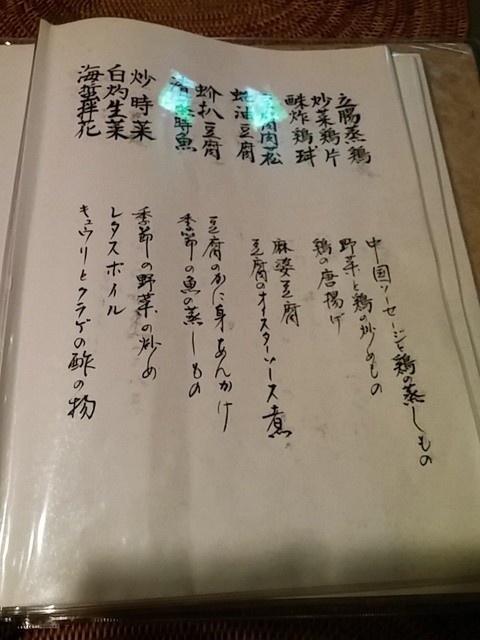 立腸蒸鶏
炒菜鶏片
酥炸鶏球
肉松
蚝油豆腐
蚧扒豆腐
時魚
炒時菜
白灼生菜
海蜇拌花
中国ソーセージと鶏の蒸しもの
野菜と鶏の炒めもの
鶏の唐揚げ
麻婆豆腐
豆腐のオイスターソース煮
豆腐のかに身あんかけ
季節の魚の蒸しもの
季節の野菜の炒め
レタスボイル
キュウリとクラゲの酢の物